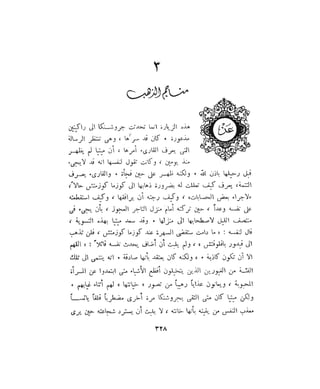 ٣
مناجم الذهب
هذه الزيارة انما تحدثت جروشنكا الى راكيتين
مذعورة • كان قد سرّها ، وهي تنتظر الرسالة
التي يعرف القارىء أمرها ، أن ميتيا لم يظهر
منذ يومين ، وكانت تقول لنفسها انه قد لا يجىء
قبل رحيلها باذن الله • ولكنه ظهر على حين فجأة • والقارىء يعرف
التتمة ، يعرف كيف تعللت له بضرورة ذهابها الى كوزما كوزمتش حالاً
« لاجراء بعض الحسابات » ، وكيف رجته أن يرافقها ، وكيف استقطعته
على نفسه وعداً ، حين تركته أمام منزل التاجر العجوز ، بأن يجىء في
منتصف الليل لاصطحابها الى منزلها • وقد سعد ميتيا بهذه التسوية ،
قال لنفسه : « ما دامت ستقضي السهرة عند كوزما كوزمتش ، فلن تذهب
الى فيدور بافلوفتش » ، ولم يلبث أن أضاف يحدث نفسه قائلاً : « اللهم
الا أن تكون كاذبة » • ولكنه كان يعتقد بأنها صادقة • انه ينتمي الى تلك
الفئة من الغيورين الذين يتخيلون أفظع الأشياء متى ابتعدوا عن المرأة
المحبوبة ، ويعانون عذاباً رهيباً من تصور « خيانتها » لهم أثناء غيابهم •
ولكن ميتيا كان متى التقى بجروشنكا مرة أخرى مضطرباً قلقاً يائساً
معذب النفس من يقينه بأنها خانته ، لا يلبث أن يسترد شجاعته حين يرى
٣٢٨